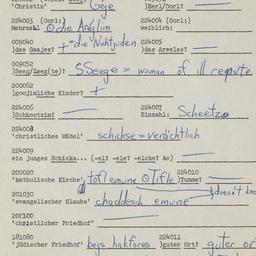 'Christin' Goje )Eerl/Oorl?
224003 (Oorl:) 224004 (Oorl:)
Mehrzahl die Areilim weiblich:
009040 224005
)das Gaajes? + "die Nichtjuden )das Areeles?
009052
)Seeg/Zeeg(te)? SSeege = woman of ill repute
200062
)goojimliche Kinder? +
224006 224007
)Schkootzim? Einzahl Scheetze
224008
'christliches Mädel' schickse = verächtlich
224009
ein junges Schicks... (-el? -sle? -elche? &c)
200020 224010
'katholische Kirche' tofl emune )Tumme?
201030 doesn't kno
'evangelischer Glaube' chaddesch emune
200100
'christlicher Friedhof'
181080 224011
'jüdischer Friedhof' )guter Ort? guter or